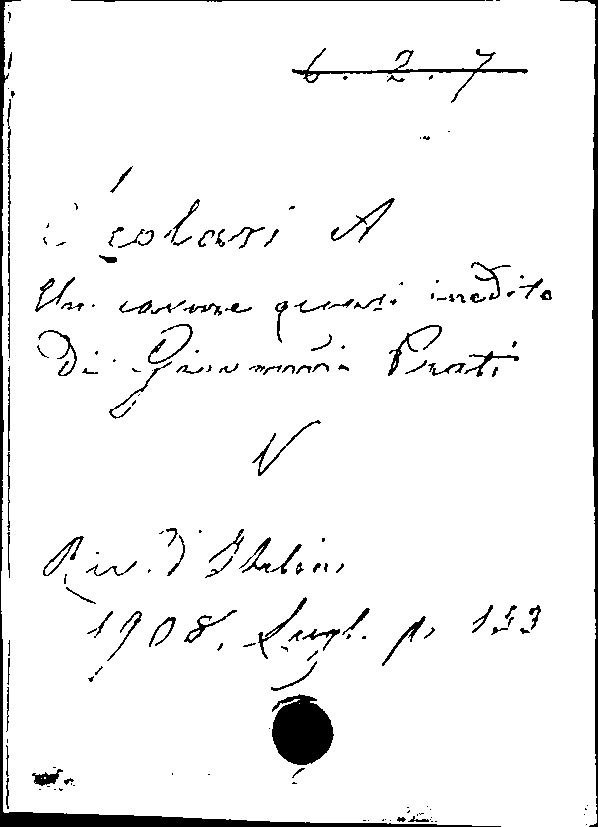 6. 2. 7
Scolari A
Un carme quasi inedito
Di Giovanni Prati
V
Riv. d'Italia,
1908, Lugl. p. 133